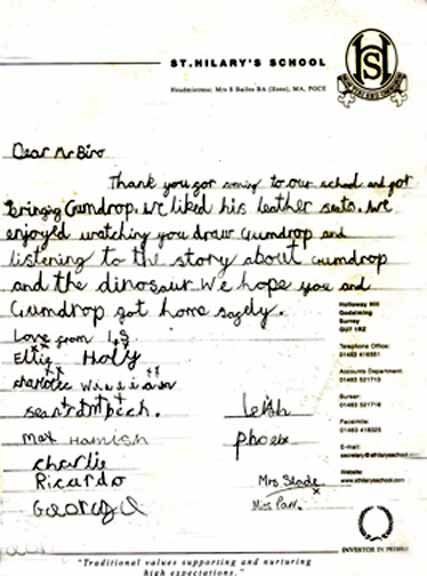 ST. HILARY'S SCHOOL
Headmistress: Mrs S Bailes BA (Hons), MA, PGCE
HS
Dear Mr Biro
Thank you gor coming to our school and gor
bringing Gumdrop. We liked his leather seats. We
enjoyed watching you draw Gumdrop and
listening to the story about Gumdrop
and the dinosaur. We hope you and
Gumdrop got home sagely.
Holloway Hill
Godalming
Surrey
GU7 1RZ
Love from 1.S
Ellie Holy
Telephone Office:
01483 416551
charlotte William
Accounts Department:
01483 521713
sean
Leish
Bursar:
01483 521716
Max Hamish
phoebe
Facsimile:
01483 418325
charlie
E-mail:
Ricardo
Mrs Slade
Website:
www.sthilarysschool.com
George
Miss Parr.
INVESTOR IN PEOPLE
"Traditional values supporting and nurturing
high expectations."